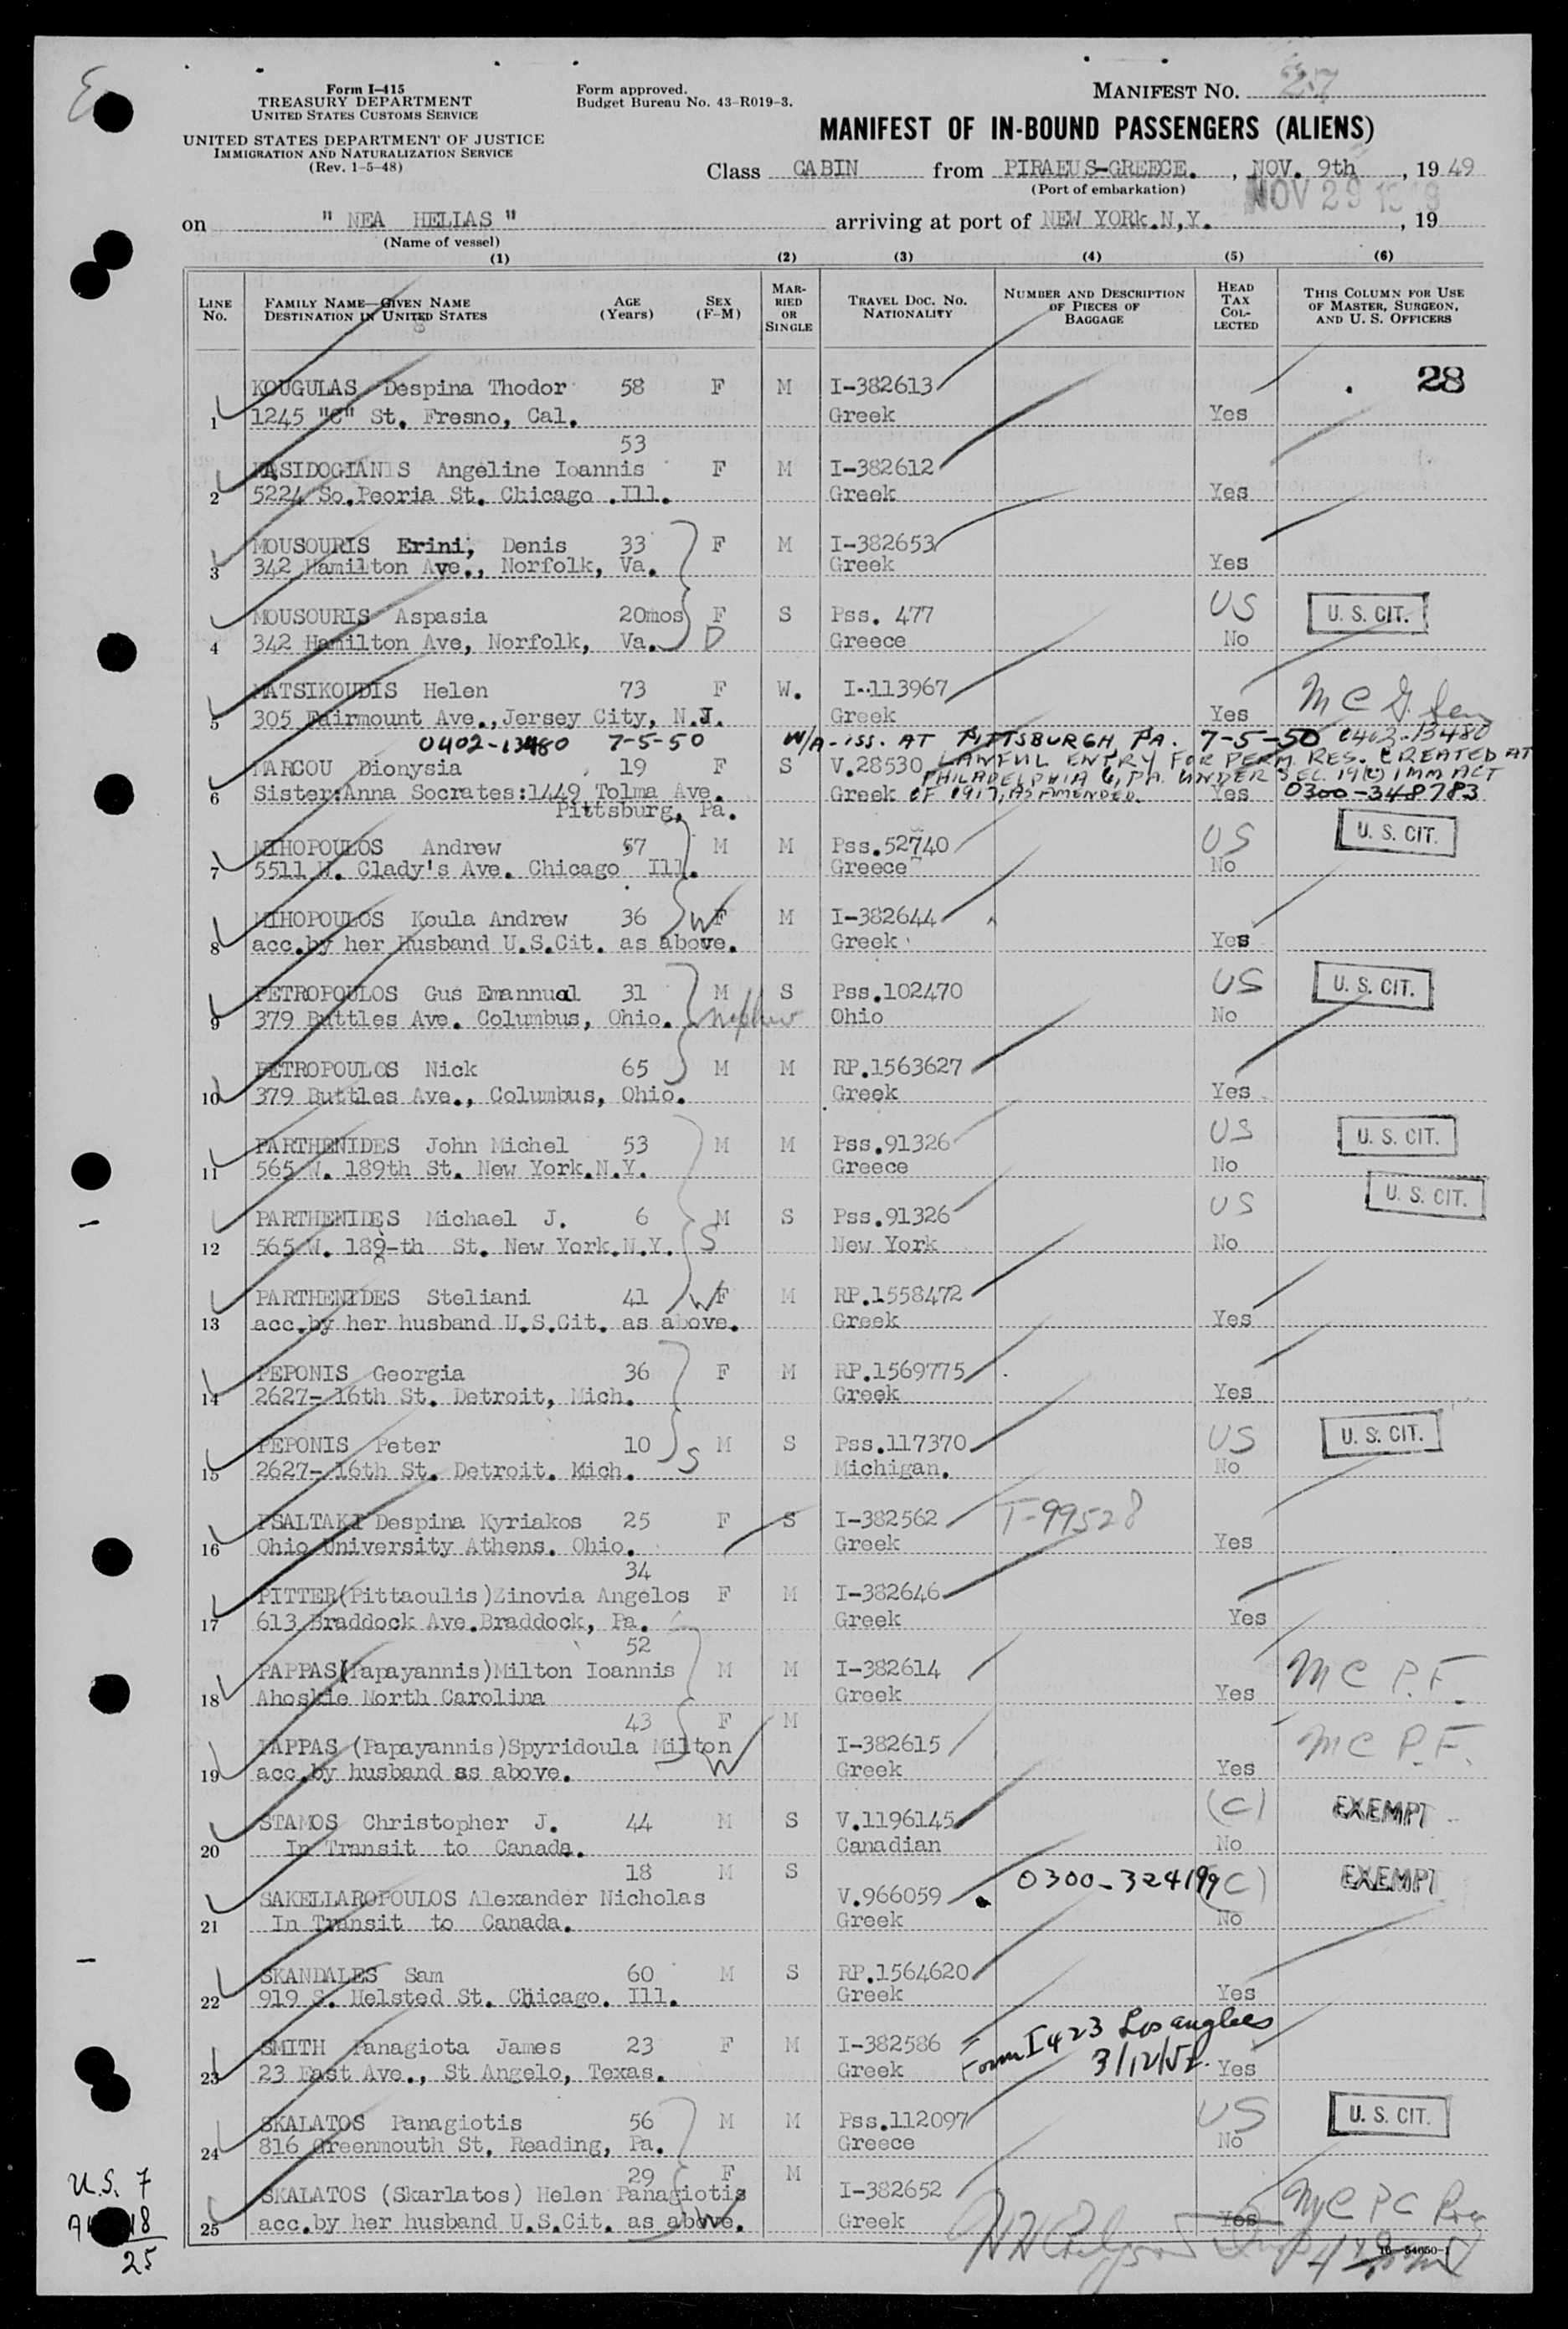 Form I-415
TREASURY DEPARTMENT
UNITED STATES CUSTOMS SERVICE
UNITED STATES DEPARTMENT OF JUSTICE
IMMIGRATION AND NATURALIZATION SERVICE
(Rev. 1-5-48)
Form approved.
Budget Bureau No. 43-R019-3.
MANIFEST NO. 27
MANIFEST OF IN-BOUND PASSENGERS (ALIENS)
Class CABIN from PIRAEUS-GREECE. , NOV. 9th , 1949
(Port of embarkation)
NOV 29
on " NEA HELIAS " arriving at port of NEW YORk.N,Y. , 19
(Name of vessel)
(1) (2) (3) (4) (5) (6)
LINE No. FAMILY NAME—GIVEN NAME DESTINATION IN UNITED STATES AGE (Years) SEX (F-M) MARRIED OR SINGLE TRAVEL DOC. NO. NATIONALITY NUMBER AND DESCRIPTION OF PIECES OF BAGGAGE HEAD TAX COLLECTED THIS COLUMN FOR USE OF MASTER, SURGEON, AND U. S. OFFICERS
28
KOUGULAS Despina Thodor 58 F M I-382613
1 1245 "C" St. Fresno, Cal. Greek Yes
53
KASIDOGIANIS Angeline Ioannis F M I-382612
2 5224 So.Peoria St. Chicago .Ill. Greek Yes
MOUSOURIS Erini, Denis 33 F M I-382653
3 342 Hamilton Ave., Norfolk, Va. Greek Yes
MOUSOURIS Aspasia 20mos F S Pss. 477 US U. S. CIT.
4 342 Hamilton Ave, Norfolk, Va. D Greece No
MATSIKOUDIS Helen 73 F W. I-113967
5 305 Fairmount Ave.,Jersey City, N.J. Greek Yes MC
0402-13480 7-5-50 W/A-ISS. AT PITTSBURGH, PA. 7-5-50 0402-13480
MARCOU Dionysia 19 F S V.28530 LAWFUL ENTRY FOR PERM. RES. CREATED AT
PHILADELPHIA 6, PA. UNDER SEC. 19(c) IMM ACT
6 Sister:Anna Socrates:1449 Tolma Ave. Greek OF 1917, AS AMENDED. Yes 0300-348783
Pittsburg, Pa.
MIHOPOULOS Andrew 57 M M Pss.52740 US U. S. CIT.
7 5511 W. Clady's Ave. Chicago Ill. Greece No
MIHOPOULOS Koula Andrew 36 W F M I-382644
8 acc.by her Husband U.S.Cit. as above. Greek Yes
PETROPOULOS Gus Emannual 31 M S Pss.102470 US U. S. CIT.
9 379 Buttles Ave. Columbus, Ohio. nephew Ohio No
PETROPOULOS Nick 65 M M RP.1563627
10 379 Buttles Ave., Columbus, Ohio. Greek Yes
PARTHENIDES John Michel 53 M M Pss.91326 US U. S. CIT.
11 565 W. 189th St. New York.N.Y. Greece No
PARTHENIDES Michael J. 6 M S Pss.91326 US U. S. CIT.
12 565 W. 189-th St. New York.N.Y. S New York No
PARTHENIDES Steliani 41 W F M RP.1558472
13 acc.by her husband U.S.Cit. as above. Greek Yes
PEPONIS Georgia 36 F M RP.1569775
14 2627- 16th St. Detroit, Mich. Greek Yes
PEPONIS Peter 10 M S Pss.117370 US U. S. CIT.
15 2627- 16th St. Detroit. Mich. S Michigan. No
PSALTAKI Despina Kyriakos 25 F S I-382562 T-99528
16 Ohio University Athens. Ohio. Greek Yes
34
PITTER(Pittaoulis)Zinovia Angelos F M I-382646
17 613 Braddock Ave.Braddock, Pa. Greek Yes
52
PAPPAS(Papayannis)Milton Ioannis M M I-382614 MC P.F.
18 Ahoskie North Carolina Greek Yes
43 F M
PAPPAS (Papayannis)Spyridoula Milton I-382615 MC P.F.
19 acc.by husband as above. W Greek Yes
STAMOS Christopher J. 44 M S V.1196145 (C) EXEMPT
20 In Transit to Canada. Canadian No
18 M S 0300-324199 (C) EXEMPT
SAKELLAROPOULOS Alexander Nicholas V.966059
21 In Transit to Canada. Greek No
SKANDALES Sam 60 M S RP.1564620
22 919 S. Helsted St. Chicago. Ill. Greek Yes
SMITH Panagiota James 23 F M I-382586 Form I423 Los angeles
23 23 East Ave., St Angelo, Texas. Greek 3/12/52. Yes
SKALATOS Panagiotis 56 M M Pss.112097 US U. S. CIT.
24 816 Greenmouth St, Reading, Pa. Greece No
29 F M
SKALATOS (Skarlatos) Helen Panagiotis I-382652 MC PC
25 acc.by her husband U.S.Cit. as above. W Greek Yes
U.S. 7
18
25
16-54650-1